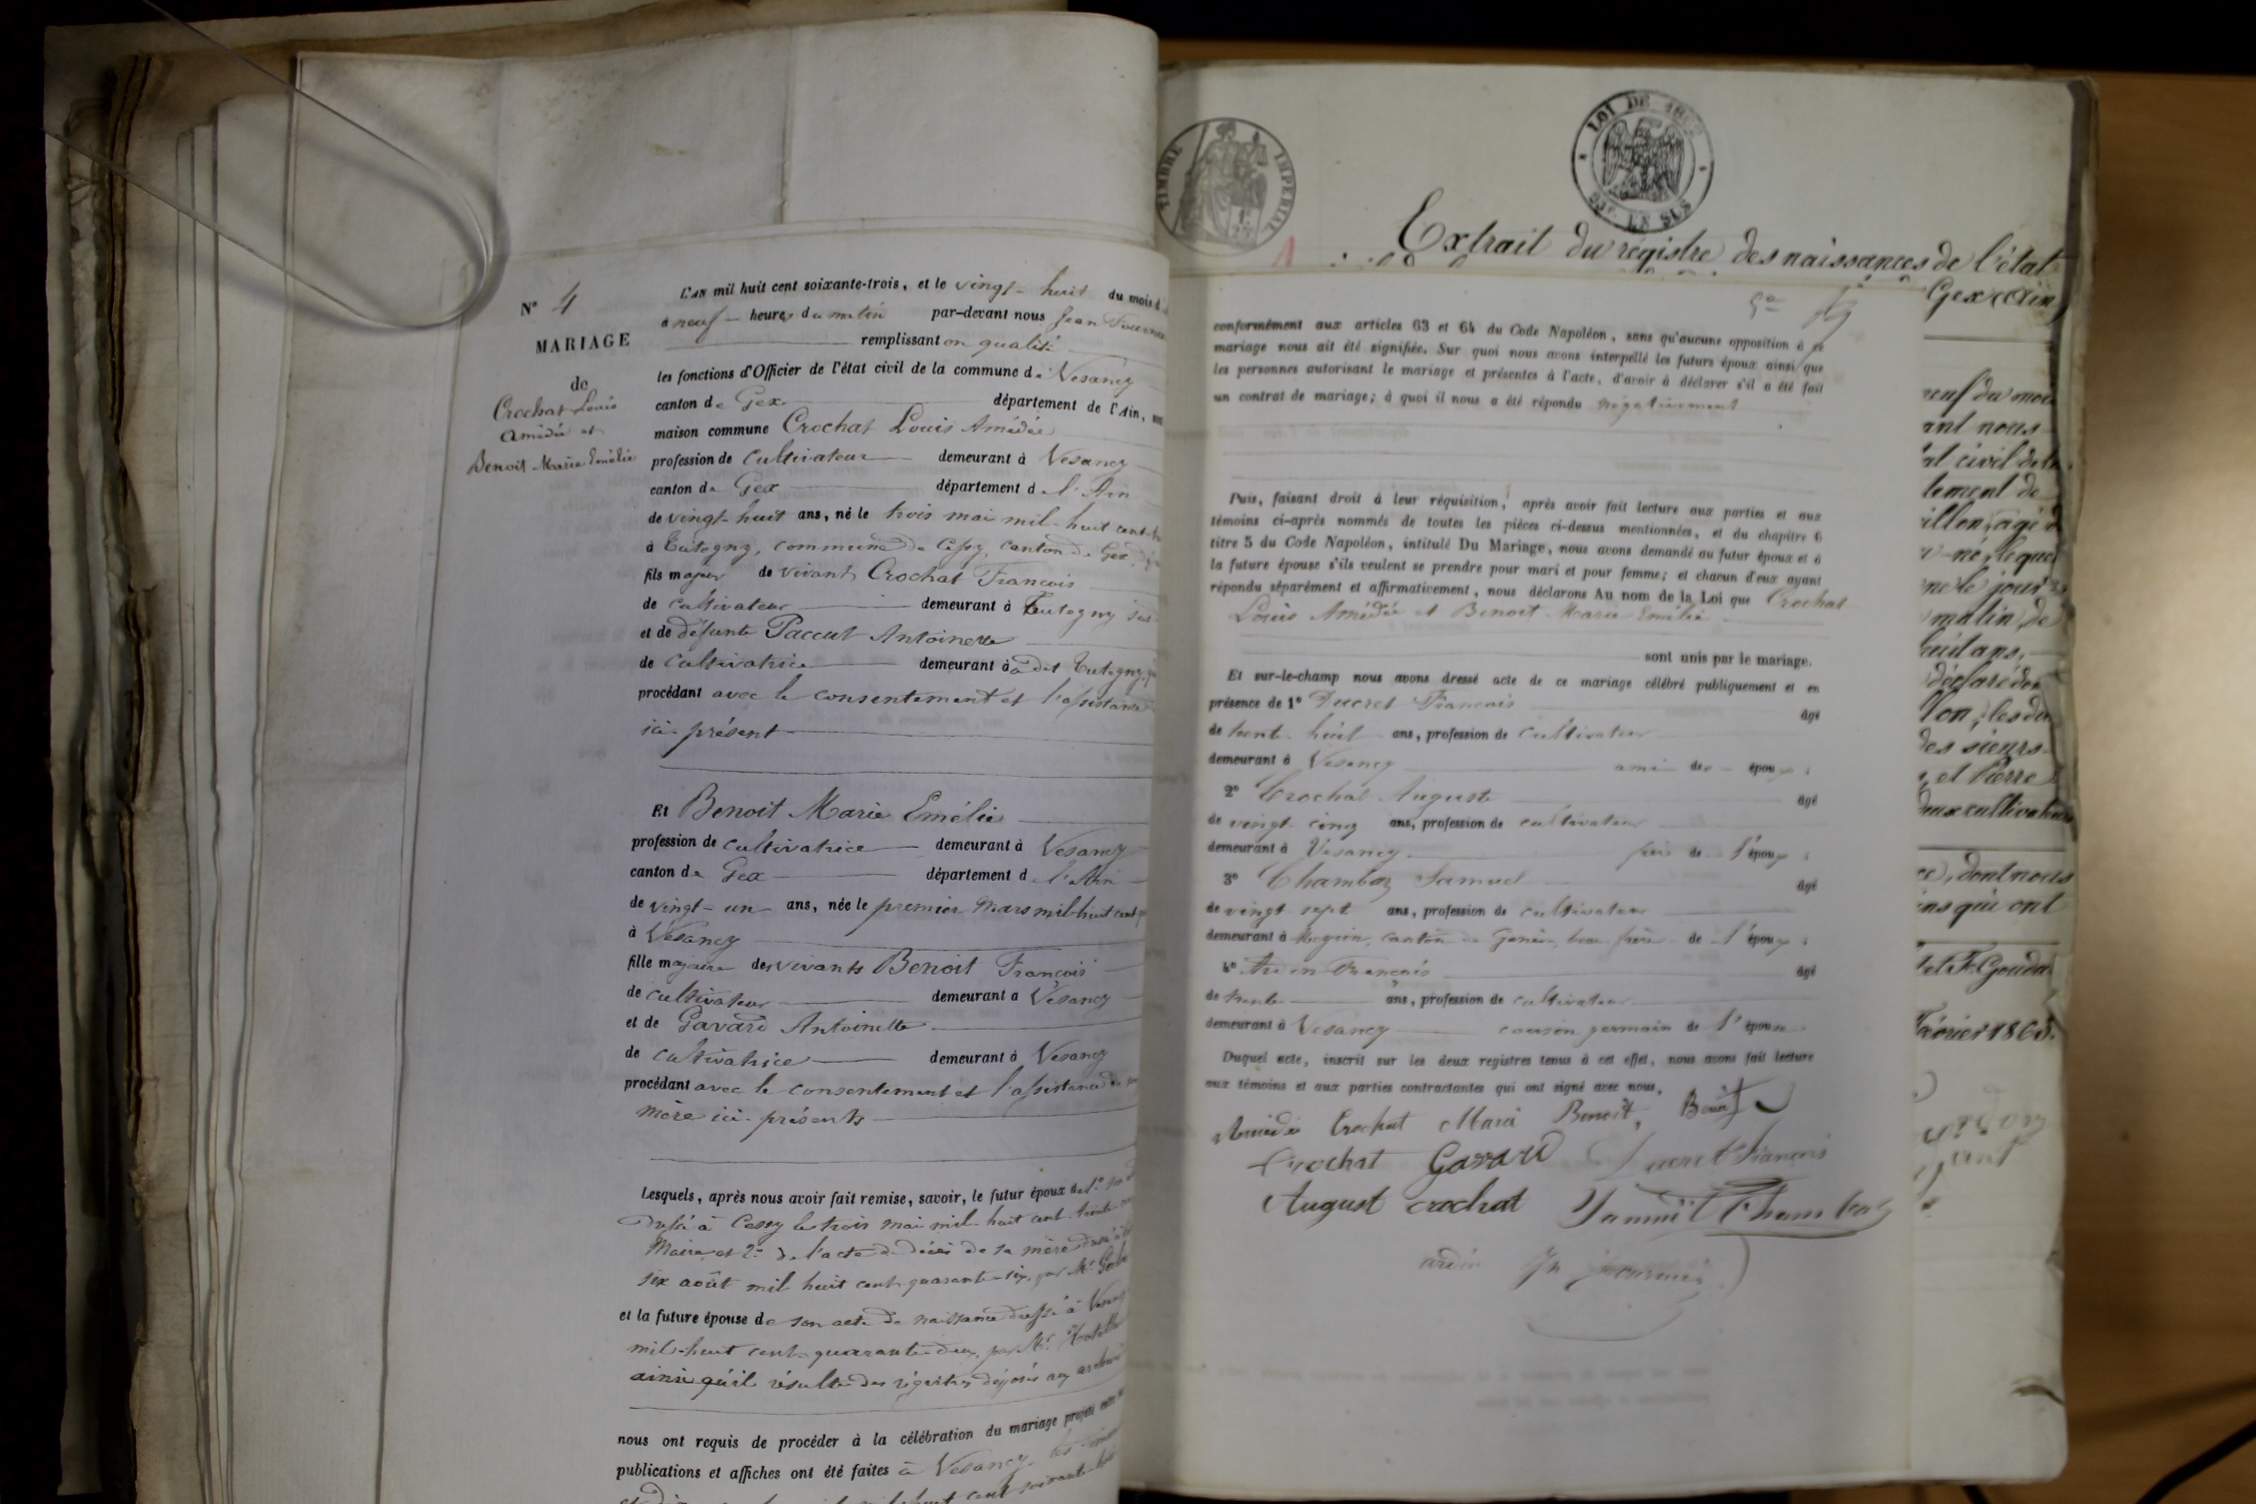 N° 4
MARIAGE
de
Crochat Louis
Amédée et
Benoit Marie Emélie
L'AN mil huit cent soixante-trois, et le vingt-huit du mois d
à neuf heures du matin par-devant nous Jean
remplissant en qualité
les fonctions d'Officier de l'état civil de la commune de Vesancy
canton de Gex département de l'Ain,
maison commune Crochat Louis Amédée
profession de cultivateur demeurant à Vesancy
canton de Gex département de l'Ain
de vingt-huit ans, né le trois mai mil-huit cent
à Tutegny, commune de Cessy, canton de Gex,
fils majeur de vivant Crochat François
de cultivateur demeurant à Tutegny
et de défunte Paccut Antoinette
de cultivatrice demeurant à dit Tutegny
procédant avec le consentement et l'assistance
ici présent
Et Benoit Marie Emélie
profession de cultivatrice demeurant à Vesancy
canton de Gex département de l'Ain
de vingt-un ans, née le premier mars mil-huit cent
à Vesancy
fille majeure des vivants Benoit François
de cultivateur demeurant à Vesancy
et de Gavard Antoinette
de cultivatrice demeurant à Vesancy
procédant avec le consentement et l'assistance de
mère ici présents
Lesquels, après nous avoir fait remise, savoir, le futur époux de 1°
dressé à Cessy le trois mai mil huit cent trente
Maire et 2° de l'acte de décès de sa mère dressé à
six août mil huit cent quarante-six, par Mr
et la future épouse de son acte de naissance dressé à Vesancy
mil-huit cent-quarante-deux, par Mr
ainsi qu'il résulte des régistres déposés aux archives
nous ont requis de procéder à la célébration du mariage projeté entre
publications et affiches ont été faites à Vesancy les
cent soixante
TIMBRE IMPERIAL
LOI DE 1862
Extrait du régistre des naissances de l'état
Gex (Ain)
conformément aux articles 63 et 64 du Code Napoléon, sans qu'aucune opposition à ce
mariage nous ait été signifiée. Sur quoi nous avons interpellé les futurs époux ainsi que
les personnes autorisant le mariage et présentes à l'acte, d'avoir à déclarer s'il a été fait
un contrat de mariage; à quoi il nous a été répondu négativement
Puis, faisant droit à leur réquisition, après avoir fait lecture aux parties et aux
témoins ci-après nommés de toutes les pièces ci-dessus mentionnées, et du chapitre 6
titre 5 du Code Napoléon, intitulé Du Mariage, nous avons demandé au futur époux et à
la future épouse s'ils veulent se prendre pour mari et pour femme; et chacun d'eux ayant
répondu séparément et affirmativement, nous déclarons Au nom de la Loi que Crochat
Louis Amédée et Benoit Marie Emélie
sont unis par le mariage.
Et sur-le-champ nous avons dressé acte de ce mariage célébré publiquement et en
présence de 1° Ducret François âgé
de trente-huit ans, profession de cultivateur
demeurant à Vesancy ami des époux;
2° Crochat Auguste âgé
de vingt-cinq ans, profession de cultivateur
demeurant à Vesancy frère de l'époux;
3° Chambaz Samuel âgé
de vingt-sept ans, profession de cultivateur
demeurant à canton de Genève, beau-frère de l'époux;
4° Ardin François âgé
de trente ans, profession de cultivateur
demeurant à Vesancy cousin germain de l'épouse
Duquel acte, inscrit sur les deux registres tenus à cet effet, nous avons fait lecture
aux témoins et aux parties contractantes qui ont signé avec nous.
Amédée Crochat Marie Benoit, Benoit
Crochat Gavard Ducret François
August crochat Samuel Chambaz
ardin
neuf du mois
ant nous
at civil de la
tement de
né, lequel
ne le jour
matin de
huit ans,
déclaré
des sieurs
et Pierre
deux cultivateurs
ce, dont nous
ins qui ont
février 1863.